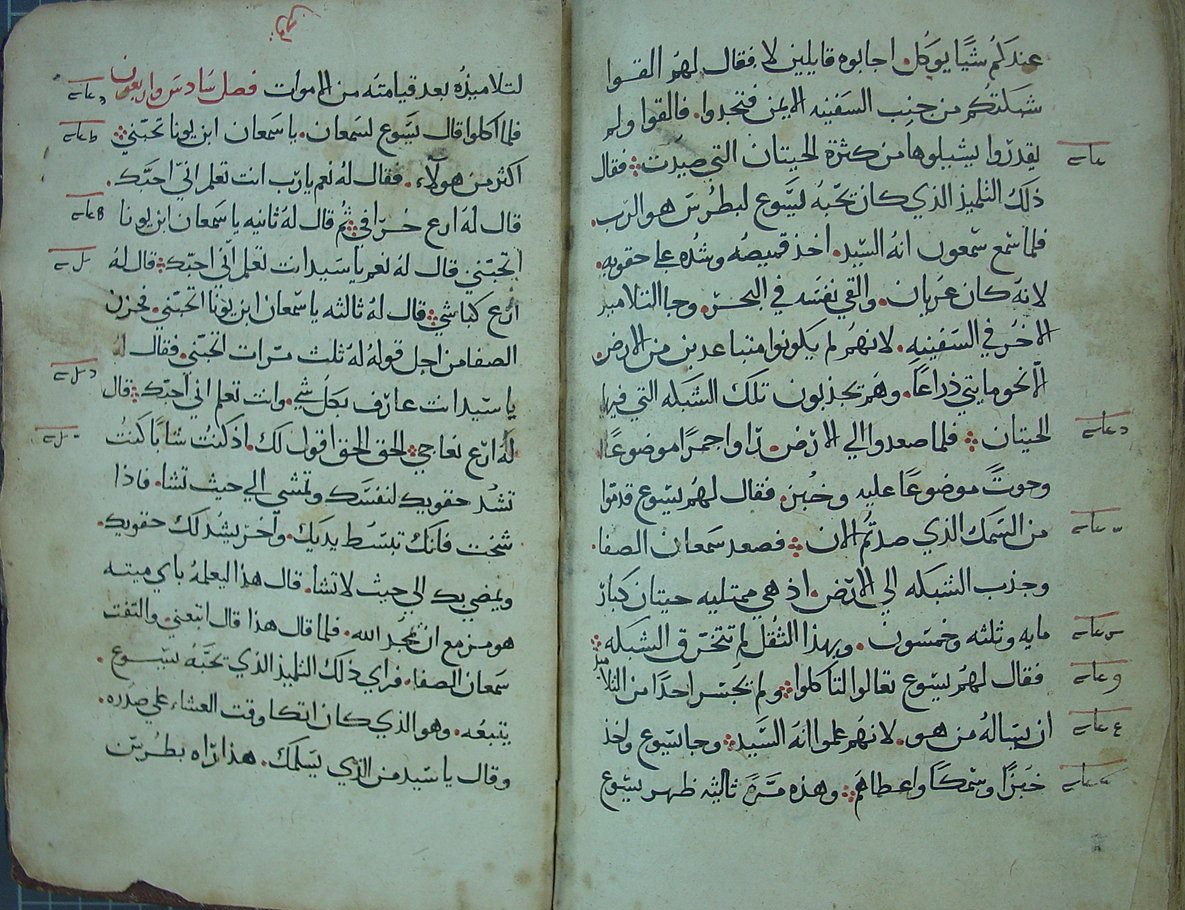 عندكم شيًا يوكل. اجابوه قايلين لا فقال لهم القوا
شبكتكم من جنب السفينه الايمن فتجدوا. فالقوا ولم
يقدروا يشيلوها من كثرة الحيتان التي صيدت فقال
ذلك التلميذ الذي كان يحبه يسوع لبطرس هو الرب.
فلما سمع سمعون انه السيد. اخذ قميصه وشده على حقويه.
لانه كان عريان. والقي نفسه في البحر. وجا التلاميد
الاخر في السفينه. لانهم لم يكونوا متباعدين من الارض.
الا نحو مايتي ذراعًا. وهم يجذبون تلك الشبكه التي فيها
الحيتان فلما صعدوا الي الارض. راوا جمرًا موضوعًا
وحوتً موضوعًا عليه وخبز. فقال لهم يسوع قدموا
من السمك الذي صدتم الان فصعد سمعان الصفا.
وجذب الشبكه الي الارض. اذ هي ممتليه حيتان كبار
مايه وثلثه وخمسون. وبهذا الثقل لم تتخرق الشبكه
فقال لهم يسوع تعالوا لتاكلوا ولم يجسر احدًا من التلاميذ
ان يساله من هو. لانهم علموا انه السيد وجا يسوع واخذ
خبزًا وسمكًا واعطاهم وهذه مرة ثالثه ظهر يسوع
لتلاميذه بعد قيامته من الاموات فصل سادس واربعون
فلما اكلوا قال يسوع لسمعان. يا سمعان ابن يونا تحبني
اكثر من هولآء. فقال له نعم يا رب انت تعلم اني احبك.
قال له ارع خرافي ثم قال له ثانيه يا سمعان ابن يونا
اتحبني قال له نعم يا سيد انت تعلم اني احبك قال له
ارع كباشي قال له ثالثه يا سمعان ابن يونا اتحبني. فحزن
الصفا من اجل قوله له ثلث مرات اتحبني. فقال له
يا سيد انت عارف بكل شي. وانت تعلم اني احبك قال
له ارع نعاجي الحق الحق اقول لك. اذ كنت شابًا كنت
تشد حقويك لنفسك وتمشي الي حيث تشا. فاذا
شخت فانك تبسط يديك. واخر يشد لك حقويك.
ويمضي بك الي حيث لا تشا. قال هذا ليعلمه باي ميته
هو مزمع ان يمجد الله. فلما قال هذا قال اتبعني. والتفت
سمعان الصفا. فراي ذلك التلميذ الذي يحبه يسوع.
يتبعه. وهو الذي كان اتكا وقت العشاء على صدره.
وقال يا سيد من الذي يسلمك. هذا راه بطرس